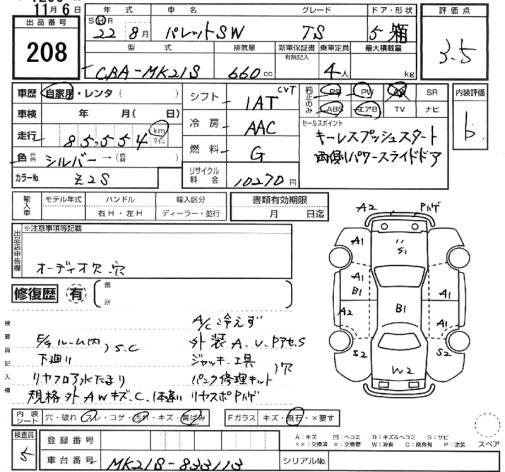 11月6日
出品番号
208
S H R 年 車名 グレード ドア・形状
22年 8月 パレットSW TS 5 箱
型式 排気量 新車保証書 有無記入 乗車定員 最大積載量
CBA-MK21S 660cc 4人 kg
評価点
3.5
車歴 自家用・レンタ( )
車検 年 月( )
走行 85,554 km マイル
色 シルバー→(色替)
カラーNo. Z2S
シフト 1AT CVT
冷房 AAC
燃料 G
リサイクル料金 10270円
純正のみ PS PW SR
ABS エアB TV ナビ
内装評価
b
セールスポイント
キーレスプッシュスタート
両側パワースライドドア
輸入車 モデル年式 ハンドル 輸入区分
年 右H・左H ディーラー・並行
書類有効期限
月 日迄
出品店申告欄
※注意事項等記載
オーディオ欠、穴
修復歴 有 箇所
検査員記入欄
A/C冷えず
外装A.U.PアセS
下廻り S.C
ジャッキ、工具
リヤフロア水たまり
パンク修理キット 欠
規格外AWキズ、C、
A2 A1 S1 A1 B1 B1 A1 A2 A1 S2 S2 W2
内装シート 穴・破れ・スレ・コゲ・汚れ・キズ・黄ばみ
Fガラス キズ・飛石・×要す
A:キズ U:ヘコミ B:キズ&ヘコミ S:サビ
××:交換済 X:要交換 W:波 C:腐食有 P:塗装
スペア
検査員
登録番号
車台番号 MK21S-833113
シリアルNo.